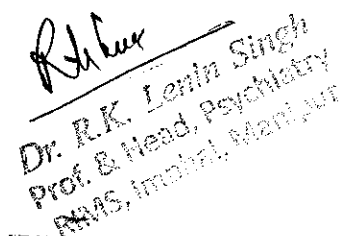 Dr. R.K. Lenin Singh
Prof. & Head, Psychiatry
RIMS, Imphal, Manipur